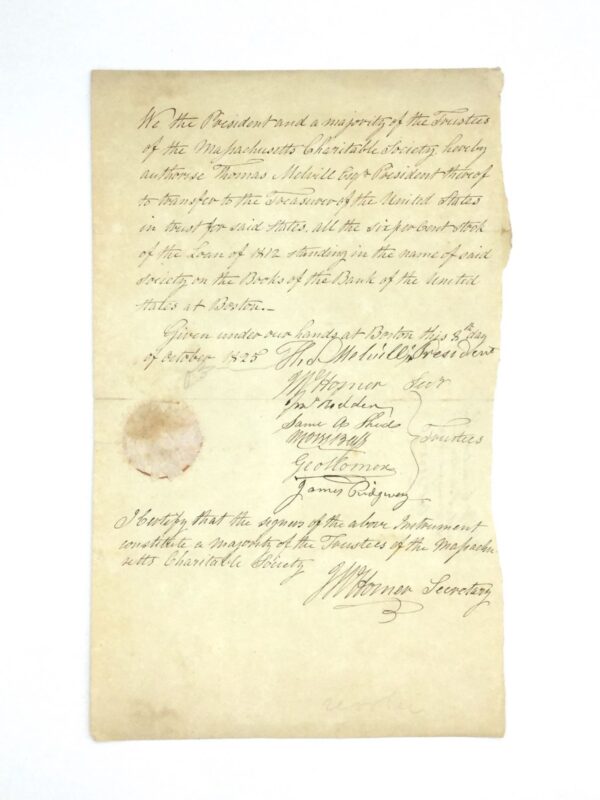 We the President and a majority of the Trustees
of the Massachusetts Charitable Society, hereby
authorise Thomas Melvill Esqr President thereof
to transfer to the Treasurer of the United States
in trust for said States, all the six per Cent stock
of the Loan of 1812 standing in the name of said
society on the Books of the Bank of the United
States at Boston.—
Given under our hands at Boston this 8th day
of October 1825 Tho Melvill, President
Homer Secr
Hedden
Saml A Shed
Trustees
Geo Homer
James Ridgway
I Certify that the signers of the above Instrument
constitute a majority of the Trustees of the Massachu
setts Charitable Society
Homer Secretary